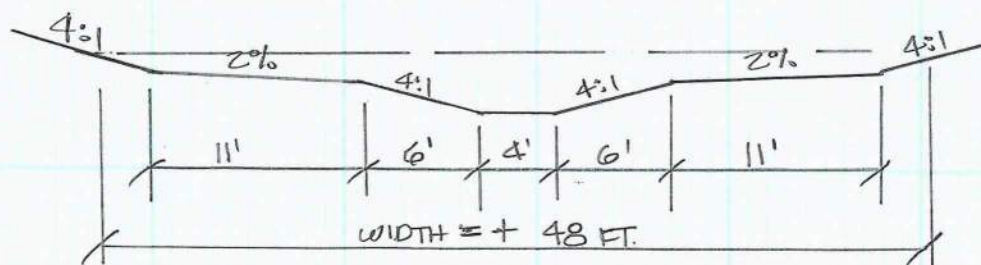 4:1
2%
4:1
4:1
2%
4:1
11'
6'
4'
6'
11'
WIDTH = + 48 FT.